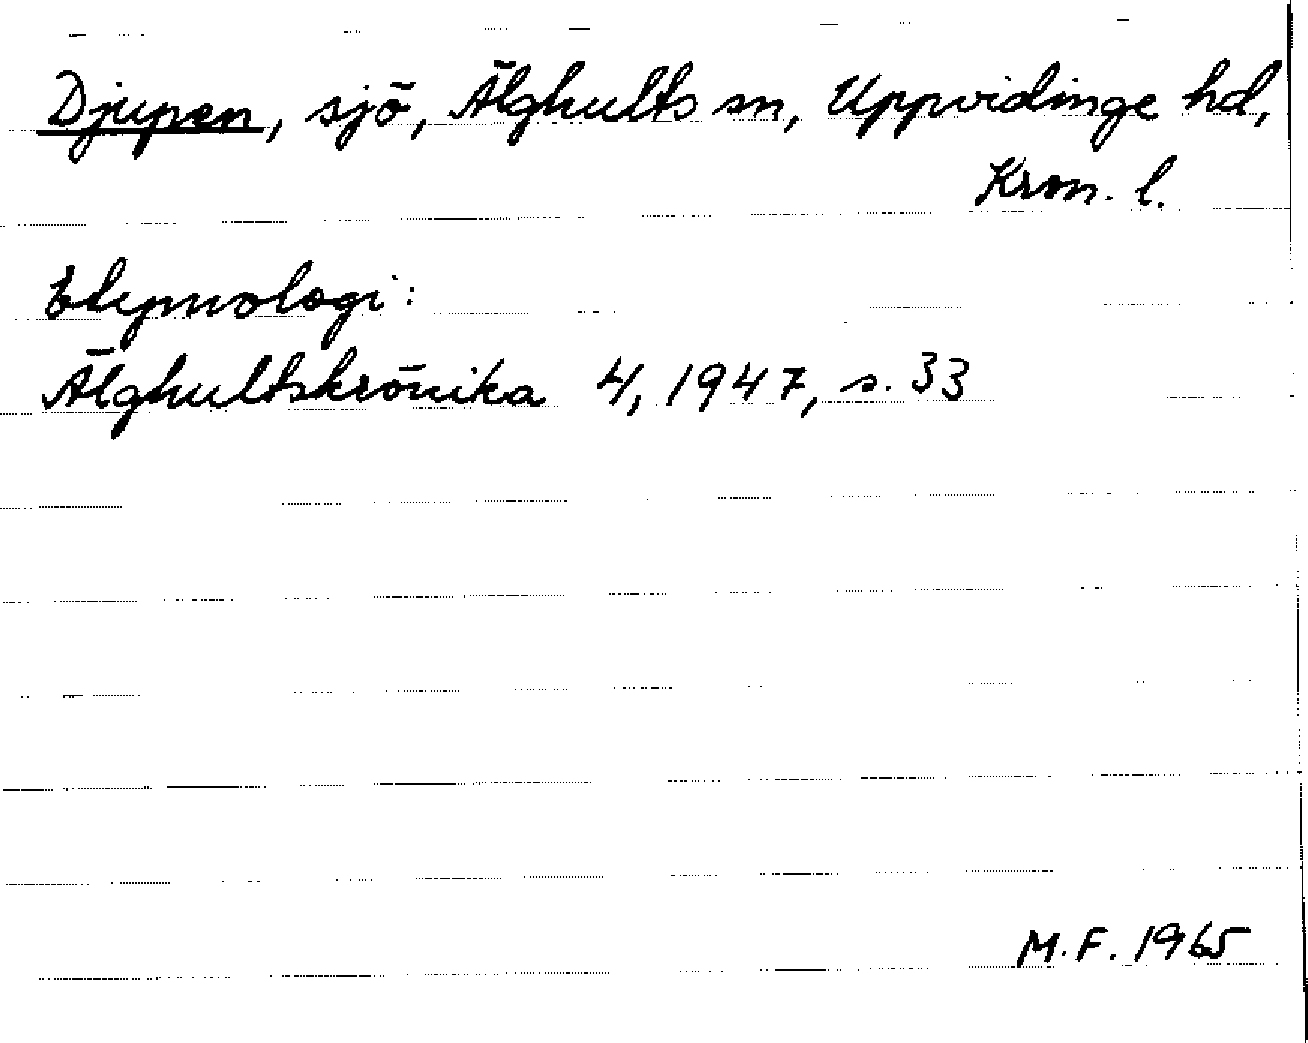 Djupen, sjö, Älghults sn, Uppvidinge hd,
Kron. l.
Etymologi:
Älghultskrönika 4, 1947, s. 33
M.F. 1965